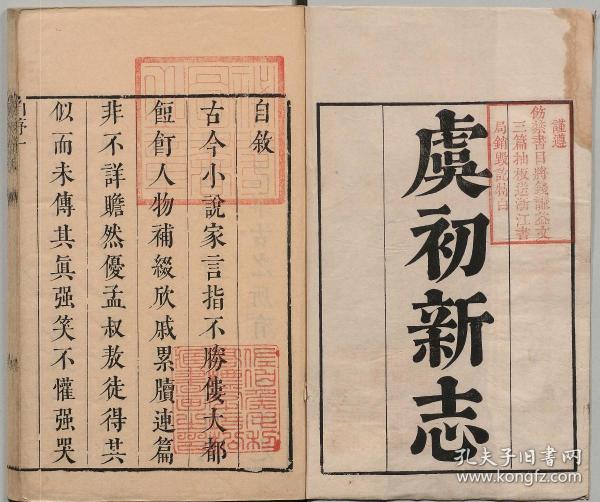 謹遵
飭禁書目將錢謙益文
三篇抽板送浙江書
局銷毀訖特白
虞初新志
自敘
古今小說家言指不勝僂大都
餖飣人物補綴欣戚累牘連篇
非不詳贍然優孟叔敖徒得其
似而未傳其眞强笑不懽强哭
孔夫子旧书网
kongfz.com